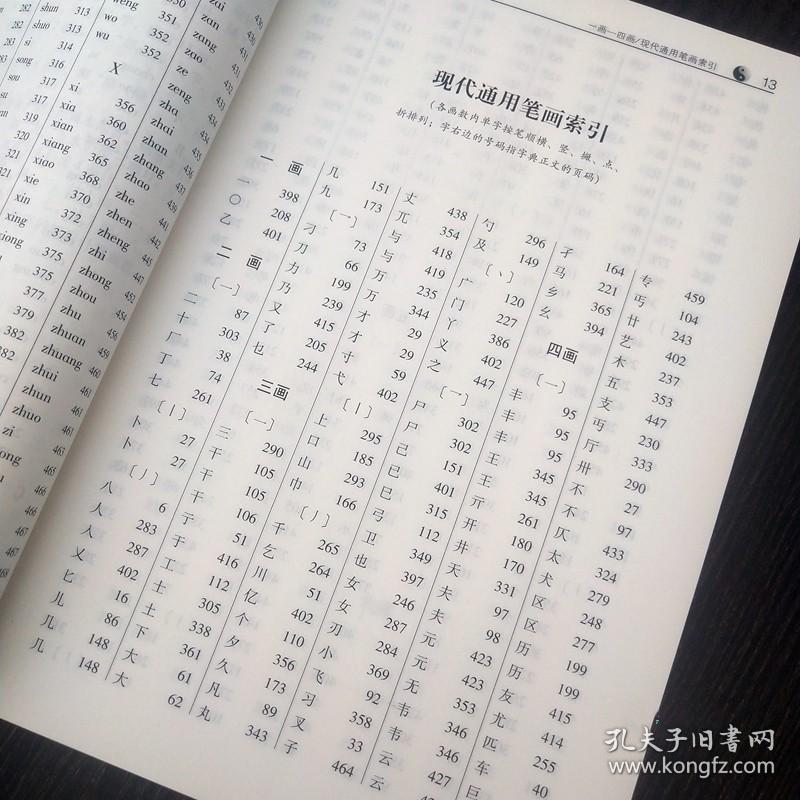 shun 313
shuo 313
si 314
song 316
sou 317
su 317
wo 351
wu 352
X
xi 356
xia 360
xian 362
xiang 365
xiao 368
xie 370
xin 372
xing 373
xiong 375
zan
zang
zao
ze
zeng
zha
zhai
zhan
zhang
zhao
zhe
zhen
zheng
zhi
zhong
zhou
zhu
zhuan
zhuang
zhui
zhun
zhuo
zi
一画—四画/现代通用笔画索引 13
现代通用笔画索引
(各画数内单字按笔顺横、竖、撇、点、
折排列；字右边的号码指字典正文的页码)
一 画
一 398
〇 208
乙 401
二 画
〔一〕
二 87
十 303
厂 38
丁 74
七 261
〔丨〕
卜 27
卜 27
〔丿〕
八 6
人 283
入 287
乂 402
匕 16
儿 86
几 148
几 148
几 151
九 173
〔一〕
刁 73
刀 66
力 199
乃 239
又 415
了 205
乜 244
三画
〔一〕
三 290
干 105
干 105
干 106
亍 51
于 416
工 112
士 305
土 338
下 361
大 61
大 62
丈 438
兀 354
与 418
与 419
万 235
万 344
才 29
才 29
寸 59
弋 402
〔丨〕
上 295
口 185
山 293
巾 166
〔丿〕
千 265
乞 264
川 51
亿 402
个 110
夕 356
久 173
凡 89
丸 343
勺 296
及 149
〔丶〕
广 120
门 227
丫 386
义 402
之 447
〔一〕
尸 302
尸 302
己 151
已 401
巳 315
弓 112
卫 349
也 397
女 246
女 287
刃 284
小 369
飞 92
习 358
叉 33
子 464
孑 164
马 221
乡 365
幺 394
四画
〔一〕
丰 95
丰 95
丰 95
王 345
王 345
亓 261
开 180
井 170
天 331
夫 97
夫 98
元 423
元 423
无 353
韦 346
韦 346
云 427
云
专 459
丐 104
廿 243
艺 402
木 237
五 353
支 447
丏 230
厅 333
卅 290
不 27
不 97
仄 433
太 324
犬 279
区 248
区 277
历 199
历 199
友 415
尤 414
匹 255
车 40
巨
孔夫子旧书网
www.kongfz.com